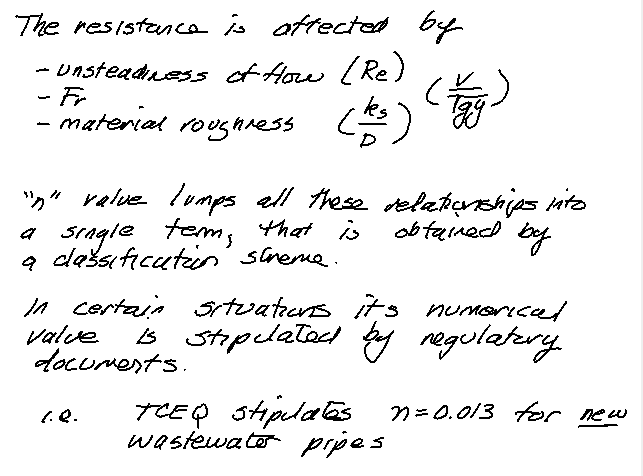 The resistance is affected by
- unsteadiness of flow (Re)
- Fr (V/√gy)
- material roughness (ks/D)
"n" value lumps all these relationships into
a single term, that is obtained by
a classification scheme.
In certain situations its numerical
value is stipulated by regulatory
documents.
i.e. TCEQ stipulates n=0.013 for new
wastewater pipes